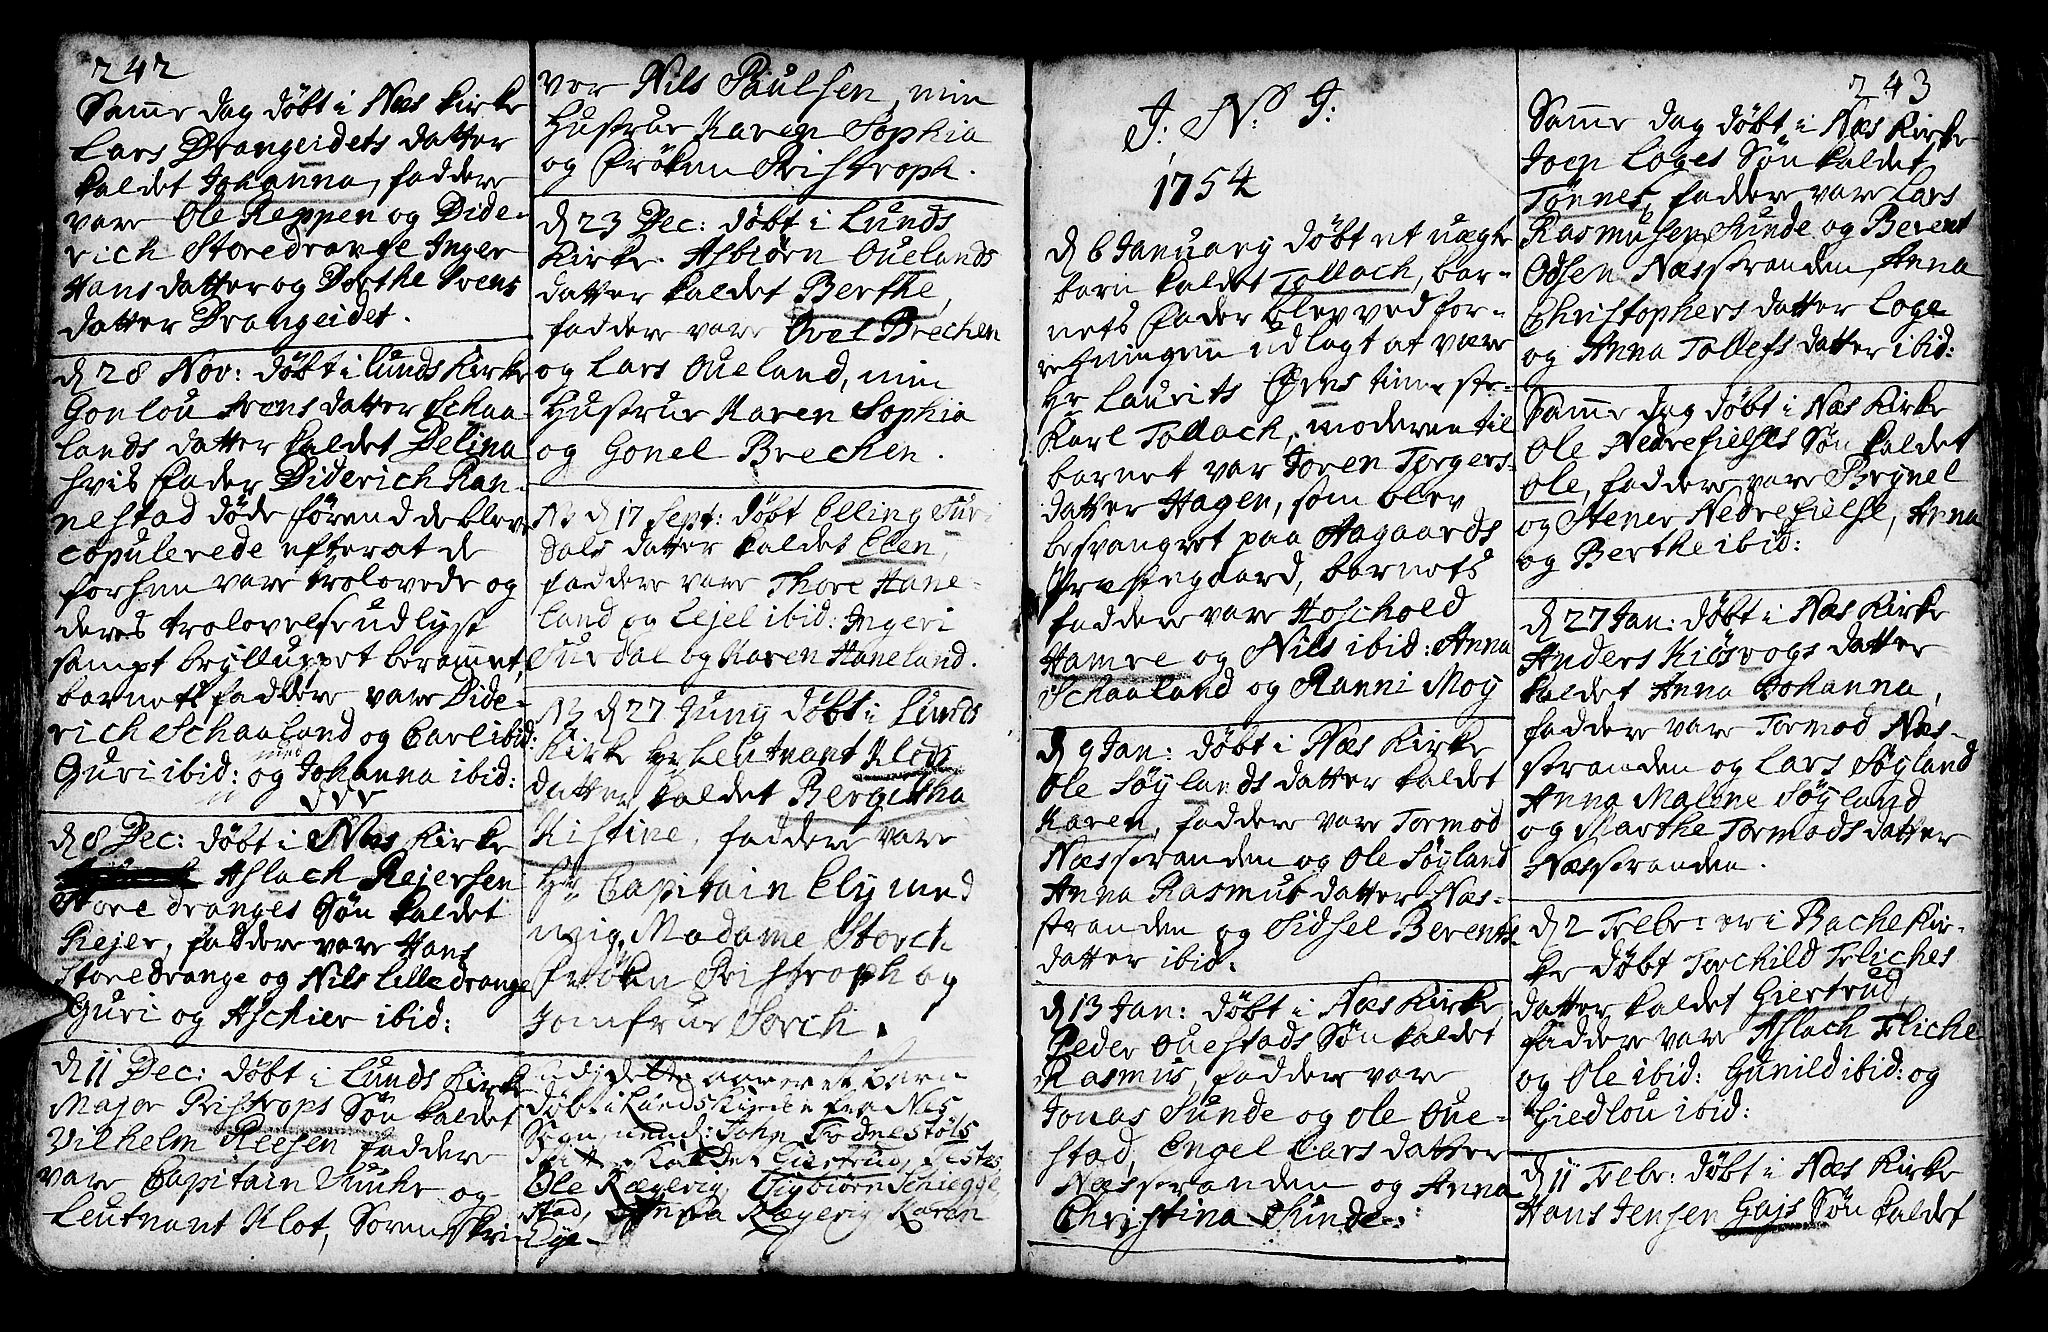 242
Same dag døbt i Næs Kirke
Lars Drangeidets datter
kaldet Johanna, faddere
vare Ole Reppen og Dide-
rich Storedrange Inger
Hans datter og Dorthe Svens
datter Drangeidet.
d 28 Nov: døbt i Lunds Kirke
Gonlou Svens datter Schaa-
lands datter kaldet Delina
hvis fader Diderich Ran-
nestad døde førend de bleve
copulerede efterat de
forhen vare trolovede og
deres trolovelse udlyst
sampt brylluppet beramet,
barnets faddere vare Dide-
rich Schaaland og Carl ibid:
Guri ibid: og Johanna ibid:
d 8 Dec: døbt i Næs Kirke
Aslach Rejersen
Store dranges Søn kaldet
Rejer, faddere vare Hans
Storedrange og Nils Lilledrange
Guri og Aschier ibid:
d 11 Dec: døbt i Lunds Kirke
Major Pristrops Søn kaldet
Vilhelm Reesen faddere
vare Capitain Munk og
Leutnant Klot, Soren skri-
ver Nils Paulsen, min
Hustrue Karen Sophia
og Frøken Pristroph.
d 23 Dec: døbt i Lunds
Kirke Asbiørn Ouelands
datter kaldet Berthe,
faddere vare Ovel Brechen
og Lars Oueland, min
Hustrue Karen Sophia
og Gonel Brechen.
NB d 17 Sept: døbt Elling Sur-
dals datter kaldet Elen,
faddere vare Thore Hane-
land og Lejel ibid: Ingeri
Surdal og Karen Haneland.
NB d 27 Juny døbt i Lunds
Kirke Hr Leutnant Klods
datter kaldet Bergitha
Kistine, faddere vare
Hr Capitain Ely med
mig, Madame Storch
Frøken Pristroph og
Jomfrue Storch.
Udj dette aar er et barn
døbt i Lunds Kirke fra Næs
Sogn, nemd: John Fodnestøls
datter kaldet Giertrud, Testes
Ole Rægevig, Thorbiørn Schiegge-
stad, Anna Rægevig Karen
Eye-
J. N. J:
1754
d 6 January døbt et uægte
barn kaldet Tollach, bar-
nets fader blev ved for-
retningen udlagt at være
Hr Laurits Ørns tieneste-
Karl Tollach, moderen til
barnet var Joren Torgers-
datter Hagen, som blev
besvangret paa Aagaards
Præstegaard, barnets
faddere vare Hoschold
Hamre og Nils ibid: Anna
Schaaland og Ranni Moy
d 9 Jan: døbt i Næs Kirke
Ole Søylands datter kaldet
Karen, faddere vare Tormod
Næsstranden og Ole Søyland
Anna Rasmus datter Næs-
stranden og Sidsel Berents-
datter ibid.
d 13 Jan: døbt i Næs Kirke
Peder Ouestads Søn kaldet
Rasmus, faddere vare
Jonas Sunde og Ole Oue-
stad, Engel Lars datter
Næsstranden og Anna
Christina Sunde.
243
Same dag døbt i Næs Kirke
Joen Loges Søn kaldet
Tønnes, faddere vare Lars
Rasmusen Sunde og Berent
Odsen Næsstranden, Anna
Christophers datter Loge
og Anna Tollefs datter ibid:
Same dag døbt i Næs Kirke
Ole Nedrefielses Søn kaldet
Ole, faddere vare Brynel
og Stener Nedrefielse, Anna
og Berthe ibid:
d 27 Jan: døbt i Næs Kirke
Anders Kiøsvogs datter
kaldet Anna Johanna,
faddere vare Tormod Næs-
stranden og Lars Søyland
Anna Malene Søyland
og Marthe Tormods datter
Næsstranden.
d 2 Febr: er i Bache Kir-
ke døbt Torchild Fliches
datter kaldet Giertrud,
faddere vare Aslach Fliche
og Ole ibid: Gunild ibid: og
Giedlou ibid:
d 11 Febr: døbt i Næs Kirke
Hans Jensen Gajs Søn kaldet